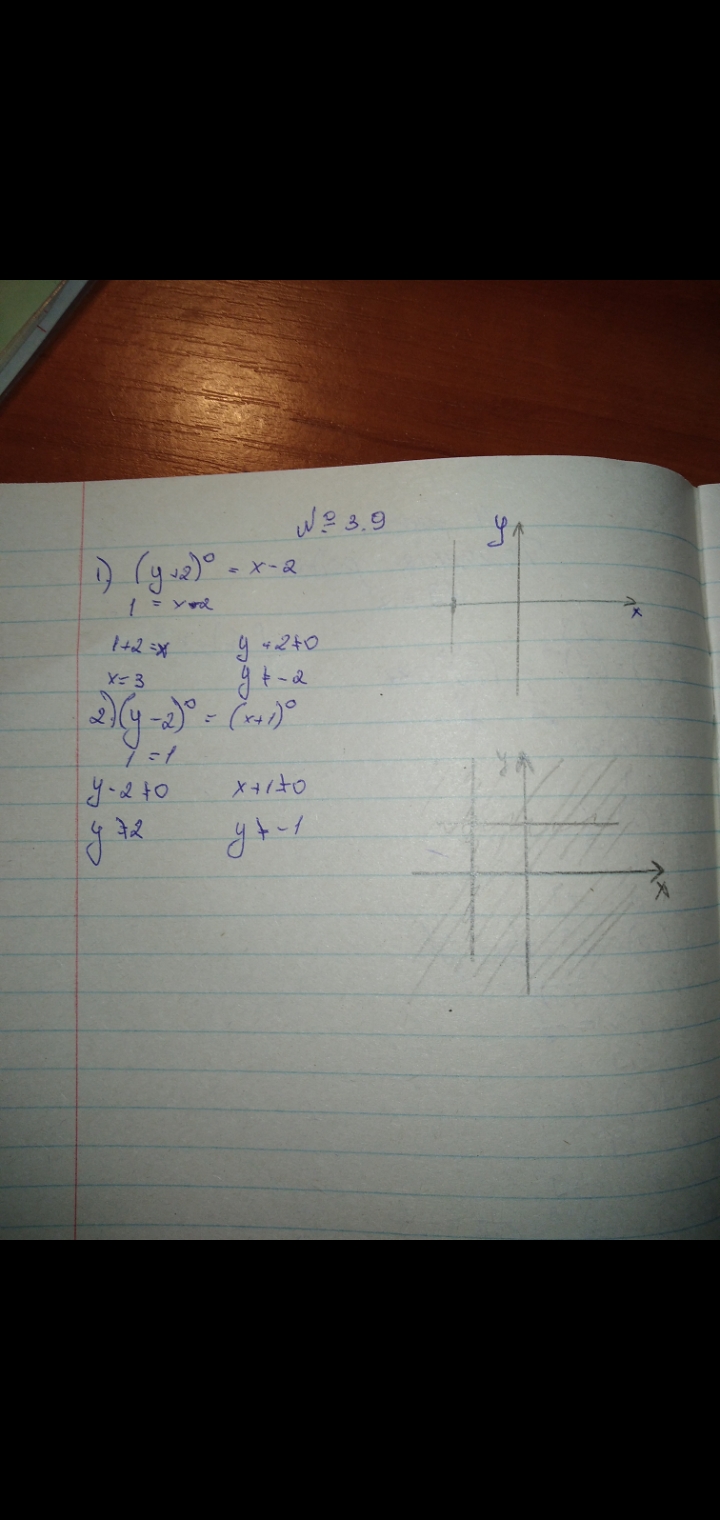 № 3.9
1) (y+2)⁰ = x-2
1 = x-2
1+2=x y+2≠0
x=3 y≠-2
2) (y-2)⁰ = (x+1)⁰
1=1
y-2≠0 x+1≠0
y≠2 y≠-1
y
x
y
x